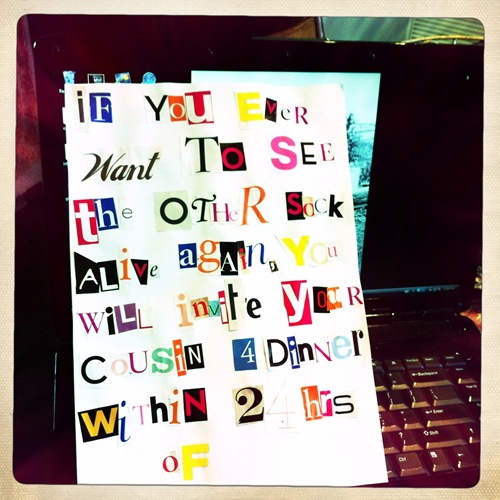 iF YOU EveR
Want TO SEE
the OTHeR Sock
ALive again, You
WiLL invite YouR
COUSIN 4 Dinner
WiTHiN 24 hrs
oF
Backspace
Enter
Shift
Ctrl